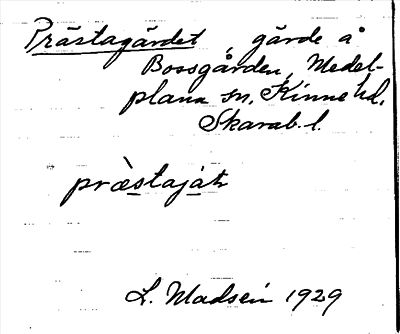 Prästagärdet, gärde å
Bossgården, Medel-
plana sn. Kinne hd.
Skarab. l.
præstajat
L. Madsén 1929